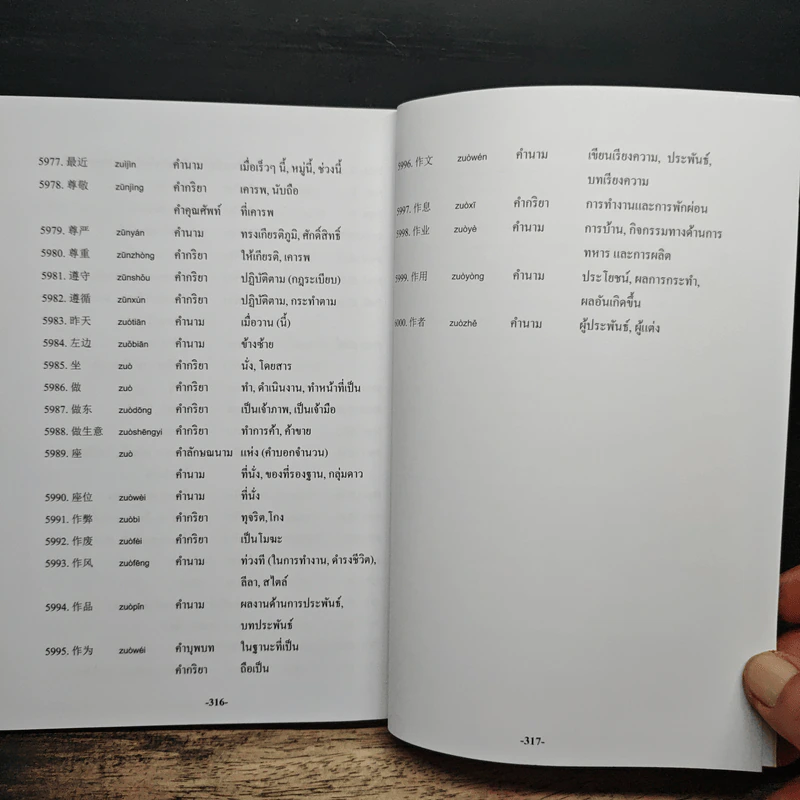 5977. 最近 zuìjìn คำนาม เมื่อเร็วๆ นี้, หมู่นี้, ช่วงนี้
5978. 尊敬 zūnjìng คำกริยา เคารพ, นับถือ
คำคุณศัพท์ ที่เคารพ
5979. 尊严 zūnyán คำนาม ทรงเกียรติภูมิ, ศักดิ์สิทธิ์
5980. 尊重 zūnzhòng คำกริยา ให้เกียรติ, เคารพ
5981. 遵守 zūnshǒu คำกริยา ปฏิบัติตาม (กฎระเบียบ)
5982. 遵循 zūnxún คำกริยา ปฏิบัติตาม, กระทำตาม
5983. 昨天 zuótiān คำนาม เมื่อวาน (นี้)
5984. 左边 zuǒbiān คำนาม ข้างซ้าย
5985. 坐 zuò คำกริยา นั่ง, โดยสาร
5986. 做 zuò คำกริยา ทำ, ดำเนินงาน, ทำหน้าที่เป็น
5987. 做东 zuòdōng คำกริยา เป็นเจ้าภาพ, เป็นเจ้ามือ
5988. 做生意 zuòshēngyi คำกริยา ทำการค้า, ค้าขาย
5989. 座 zuò คำลักษณนาม แห่ง (คำบอกจำนวน)
คำนาม ที่นั่ง, ของที่รองฐาน, กลุ่มดาว
5990. 座位 zuòwèi คำนาม ที่นั่ง
5991. 作弊 zuòbì คำกริยา ทุจริต,โกง
5992. 作废 zuòfèi คำกริยา เป็นโมฆะ
5993. 作风 zuòfēng คำนาม ท่วงที (ในการทำงาน, ดำรงชีวิต),
ลีลา, สไตล์
5994. 作品 zuòpǐn คำนาม ผลงานด้านการประพันธ์,
บทประพันธ์
5995. 作为 zuòwéi คำบุพบท ในฐานะที่เป็น
คำกริยา ถือเป็น
-316-
5996. 作文 zuòwén คำนาม เขียนเรียงความ, ประพันธ์,
บทเรียงความ
5997. 作息 zuòxī คำกริยา การทำงานและการพักผ่อน
5998. 作业 zuòyè คำนาม การบ้าน, กิจกรรมทางด้านการ
ทหาร และการผลิต
5999. 作用 zuòyòng คำนาม ประโยชน์, ผลการกระทำ,
ผลอันเกิดขึ้น
6000. 作者 zuòzhě คำนาม ผู้ประพันธ์, ผู้แต่ง
-317-